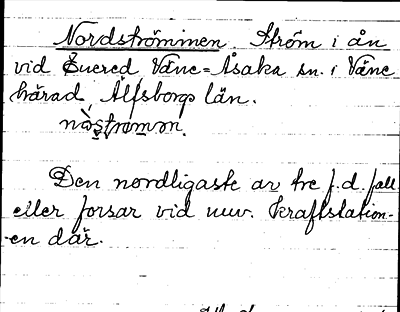 Nordströmmen. Ström i ån
vid Önered, Väne-Åsaka sn. i Väne
härad, Älfsborgs län.
Den nordligaste av tre f.d. fall
eller forsar vid nuv. kraftstation-
en där.